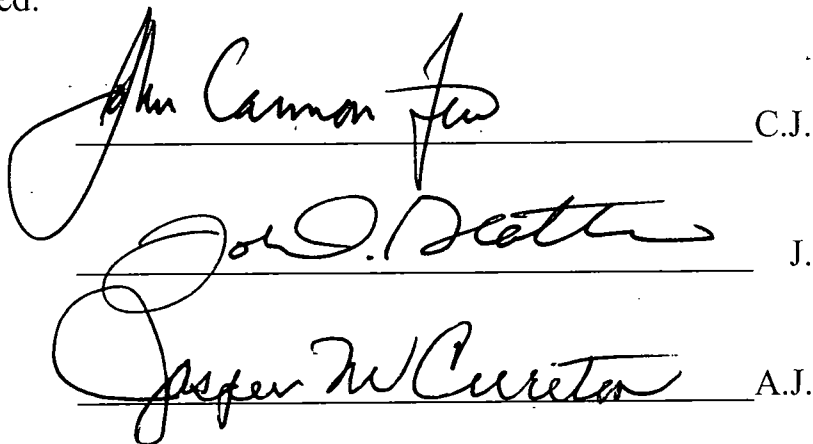 ed.
John Cannon Few C.J.
John D. Geathers J.
Jasper M Cureton A.J.